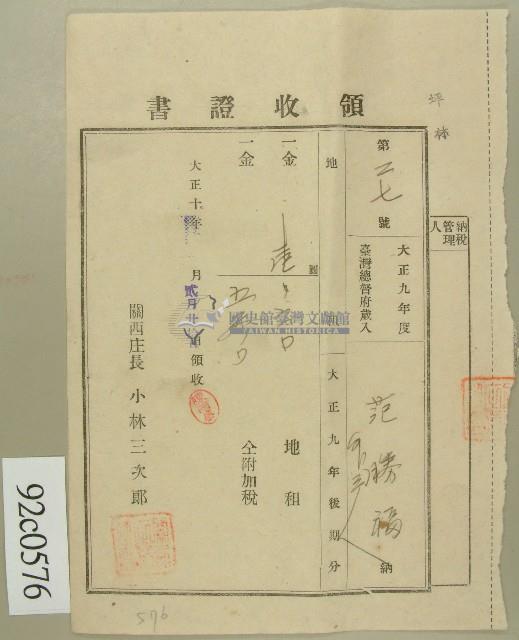 領收證書
坪林
納稅管理人
第二七號
大正九年度
臺灣總督府歲入
范勝福
納
地租
大正九年後期分
一金
圓
地租
一金
仝附加稅
大正十年
月
貳月廿
日領收
關西庄長 小林三次郎
國史館臺灣文獻館
TAIWAN HISTORICA
92c0576
576